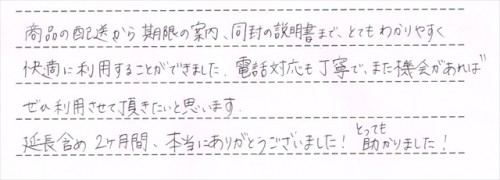 商品の配送から期限の案内、同封の説明書まで、とてもわかりやすく
快適に利用することができました。電話対応も丁寧で、また機会があれば
ぜひ利用させて頂きたいと思います。
延長含め2ヶ月間、本当にありがとうございました！とっても助かりました！